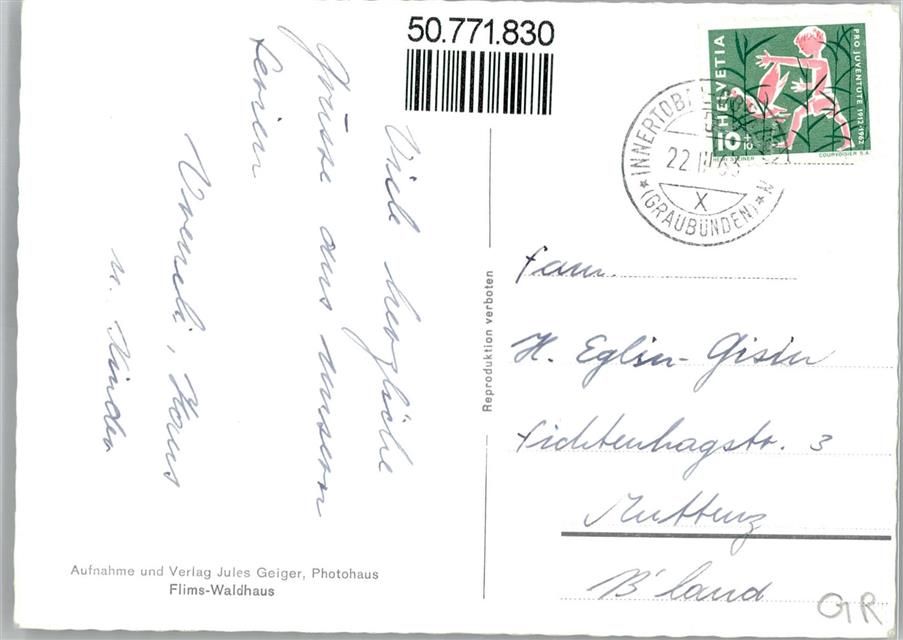 50.771.830
HELVETIA
10+10
PRO JUVENTUTE 1912-1962
HERI STEINER
COURVOISIER S.A.
22.III.63
X
*(GRAUBÜNDEN)*
Viele herzliche
Grüsse aus unsern
Ferien
Vreneli, Hans
u. Kinder
Reproduktion verboten
Fam.
H. Eglin-Gisin
Fichtenhagstr. 3
Muttenz
B'land
Aufnahme und Verlag Jules Geiger, Photohaus
Flims-Waldhaus
GR